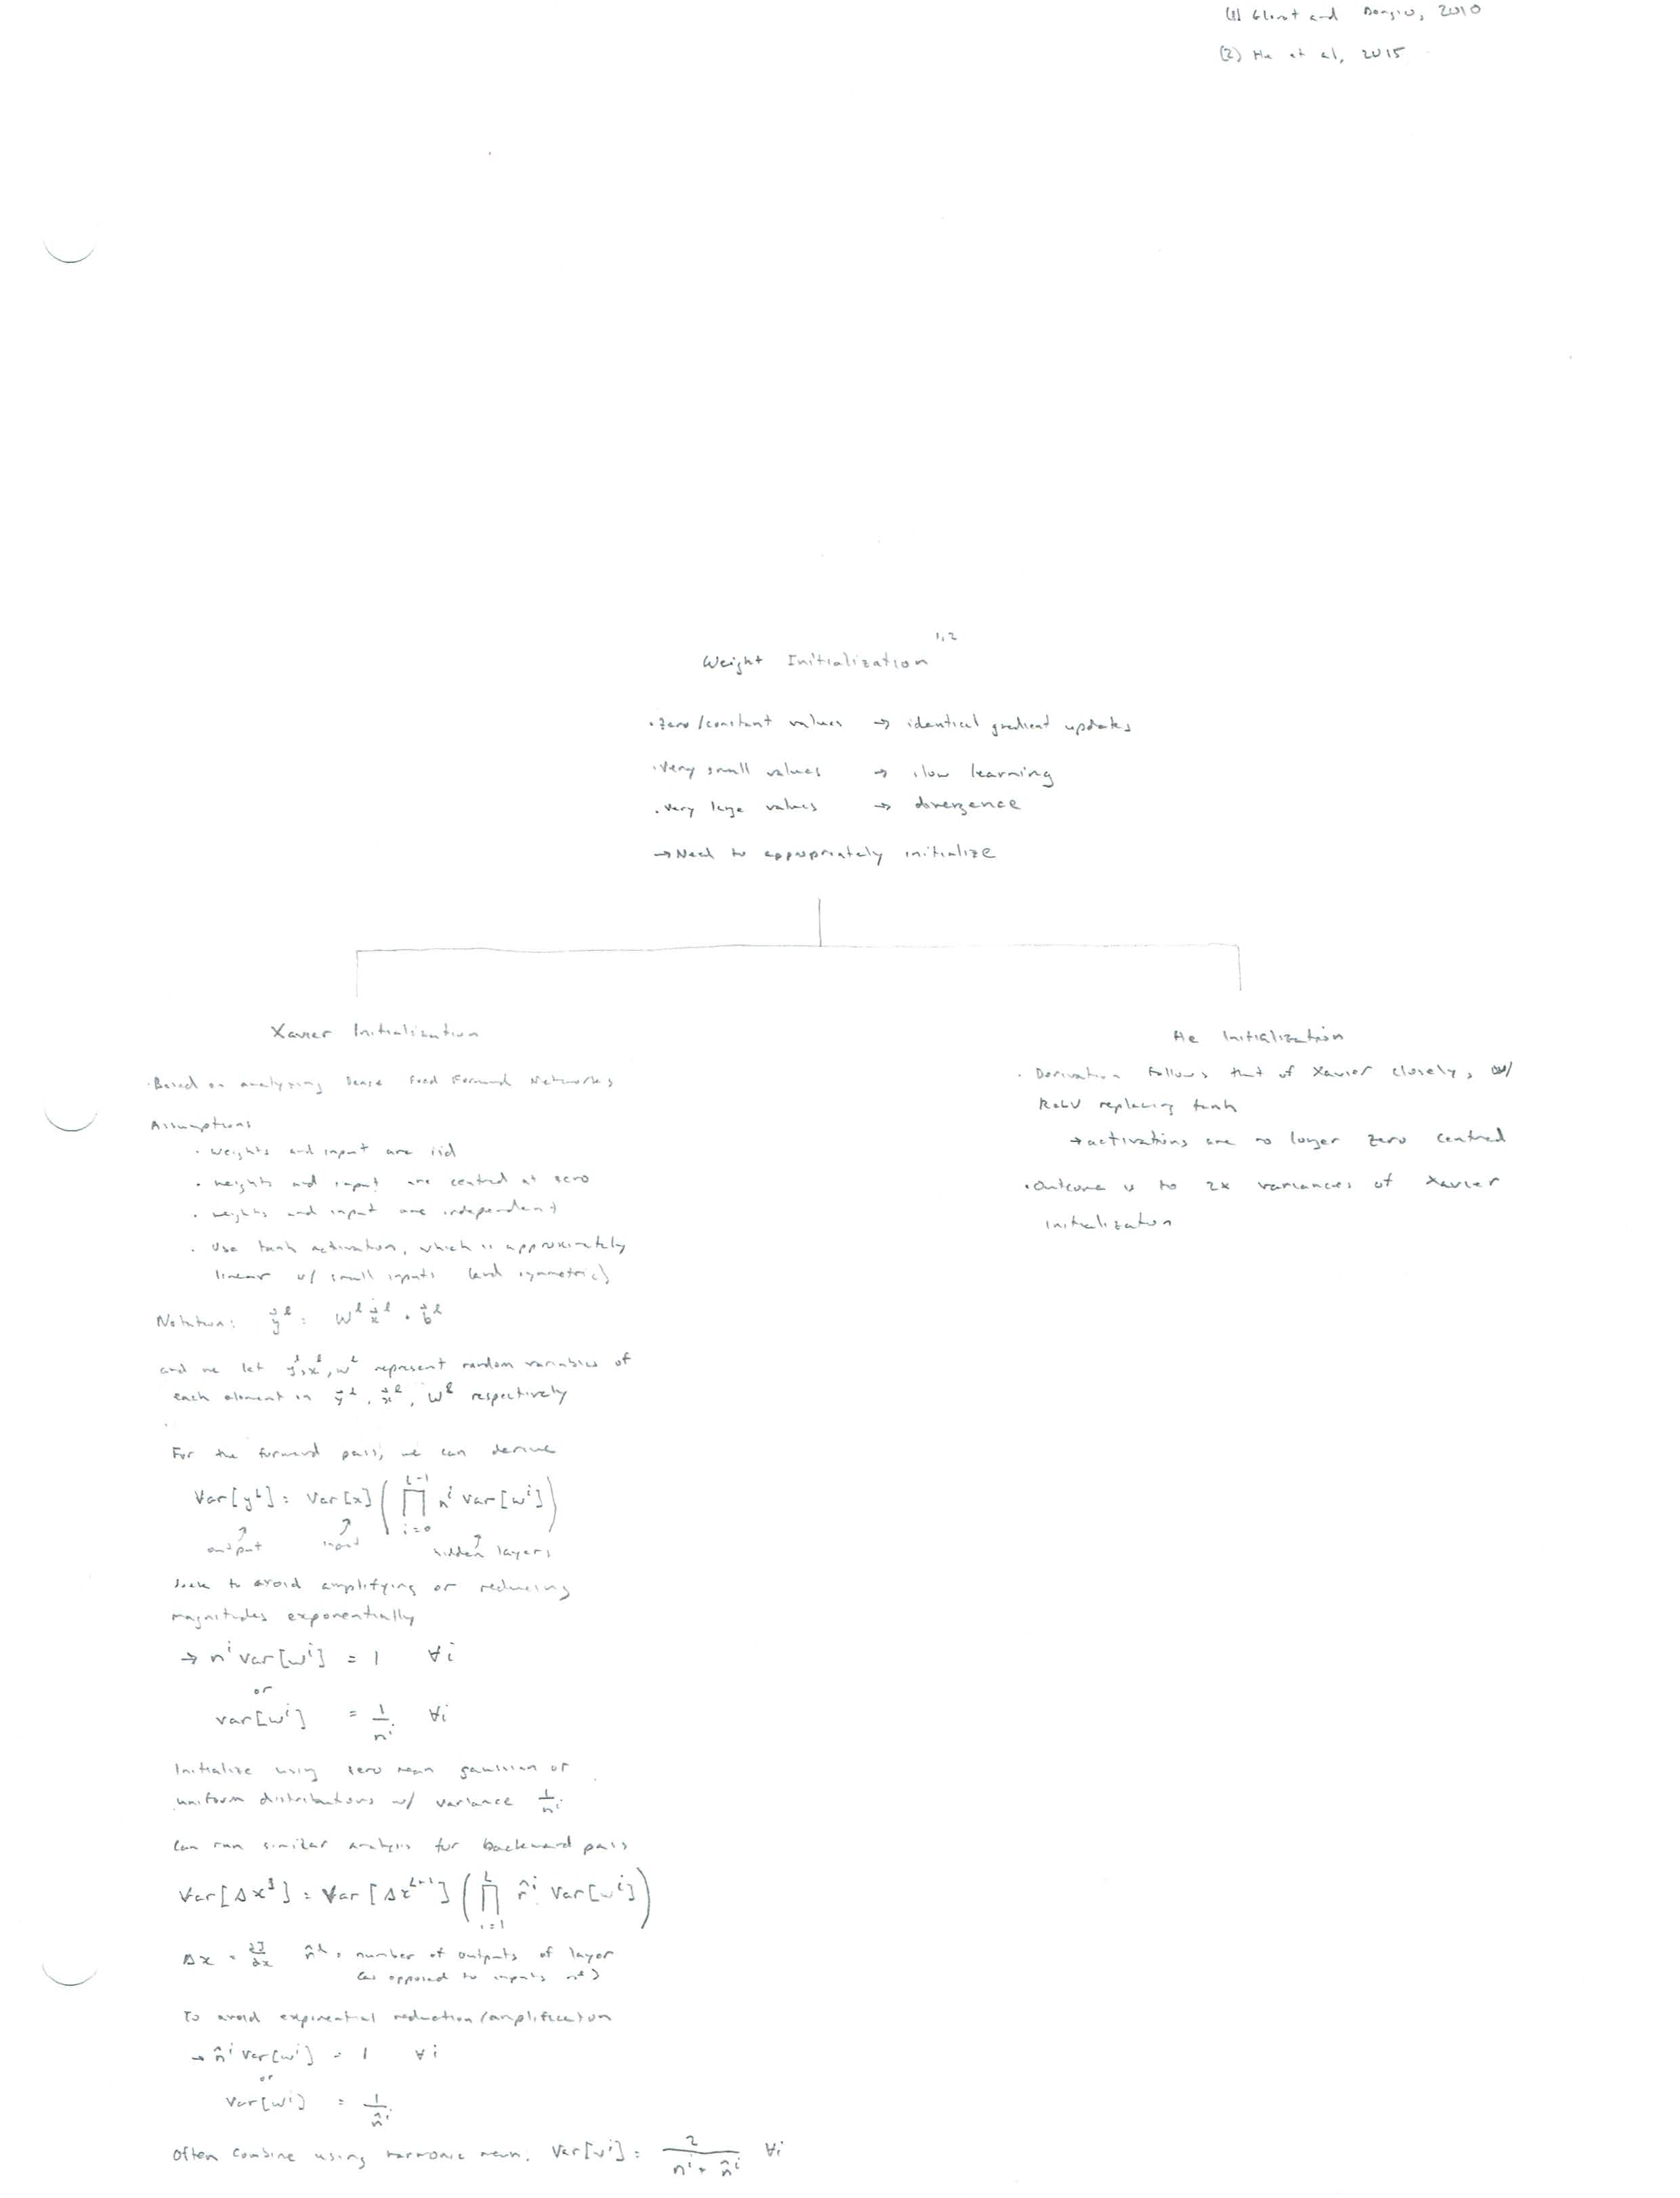 (1) Glorot and Bengio, 2010
(2) He et al, 2015
Weight Initialization 1,2
· Zero/constant values → identical gradient updates
· Very small values → slow learning
· Very large values → divergence
→ Need to appropriately initialize
Xavier Initialization
· Based on analyzing Dense Feed Forward Networks
Assumptions
· weights and input are iid
· weights and input are centred at zero
· weights and input are independent
· Use tanh activation, which is approximately
linear w/ small inputs (and symmetric)
Notation: y⃗^l = W^l x⃗^l + b⃗^l
and we let y^l, x^l, w^l represent random variables of
each element in y⃗^l, x⃗^l, W^l respectively
For the forward pass, we can derive
Var[y^L] = Var[x] ( ∏_{i=0}^{L-1} n^i Var[w^i] )
output input hidden layers
Seek to avoid amplifying or reducing
magnitudes exponentially
→ n^i Var[w^i] = 1 ∀i
or
Var[w^i] = 1/n^i ∀i
Initialize using zero mean gaussian or
uniform distributions w/ variance 1/n^i
Can run similar analysis for backward pass
Var[Δx^] = Var[Δx^{L+1}] ( ∏_{i=1}^{L} n̂^i Var[w^i] )
Δx = ∂J/∂x n̂^l = number of outputs of layer
(as opposed to inputs n^l)
To avoid exponential reduction/amplification
→ n̂^i Var[w^i] = 1 ∀i
or
Var[w^i] = 1/n̂^i
Often combine using harmonic mean. Var[w^i] = 2/(n^i + n̂^i) ∀i
He Initialization
· Derivation follows that of Xavier closely, w/
ReLU replacing tanh
→ activations are no longer zero centred
· Outcome is to 2x variances of Xavier
initialization